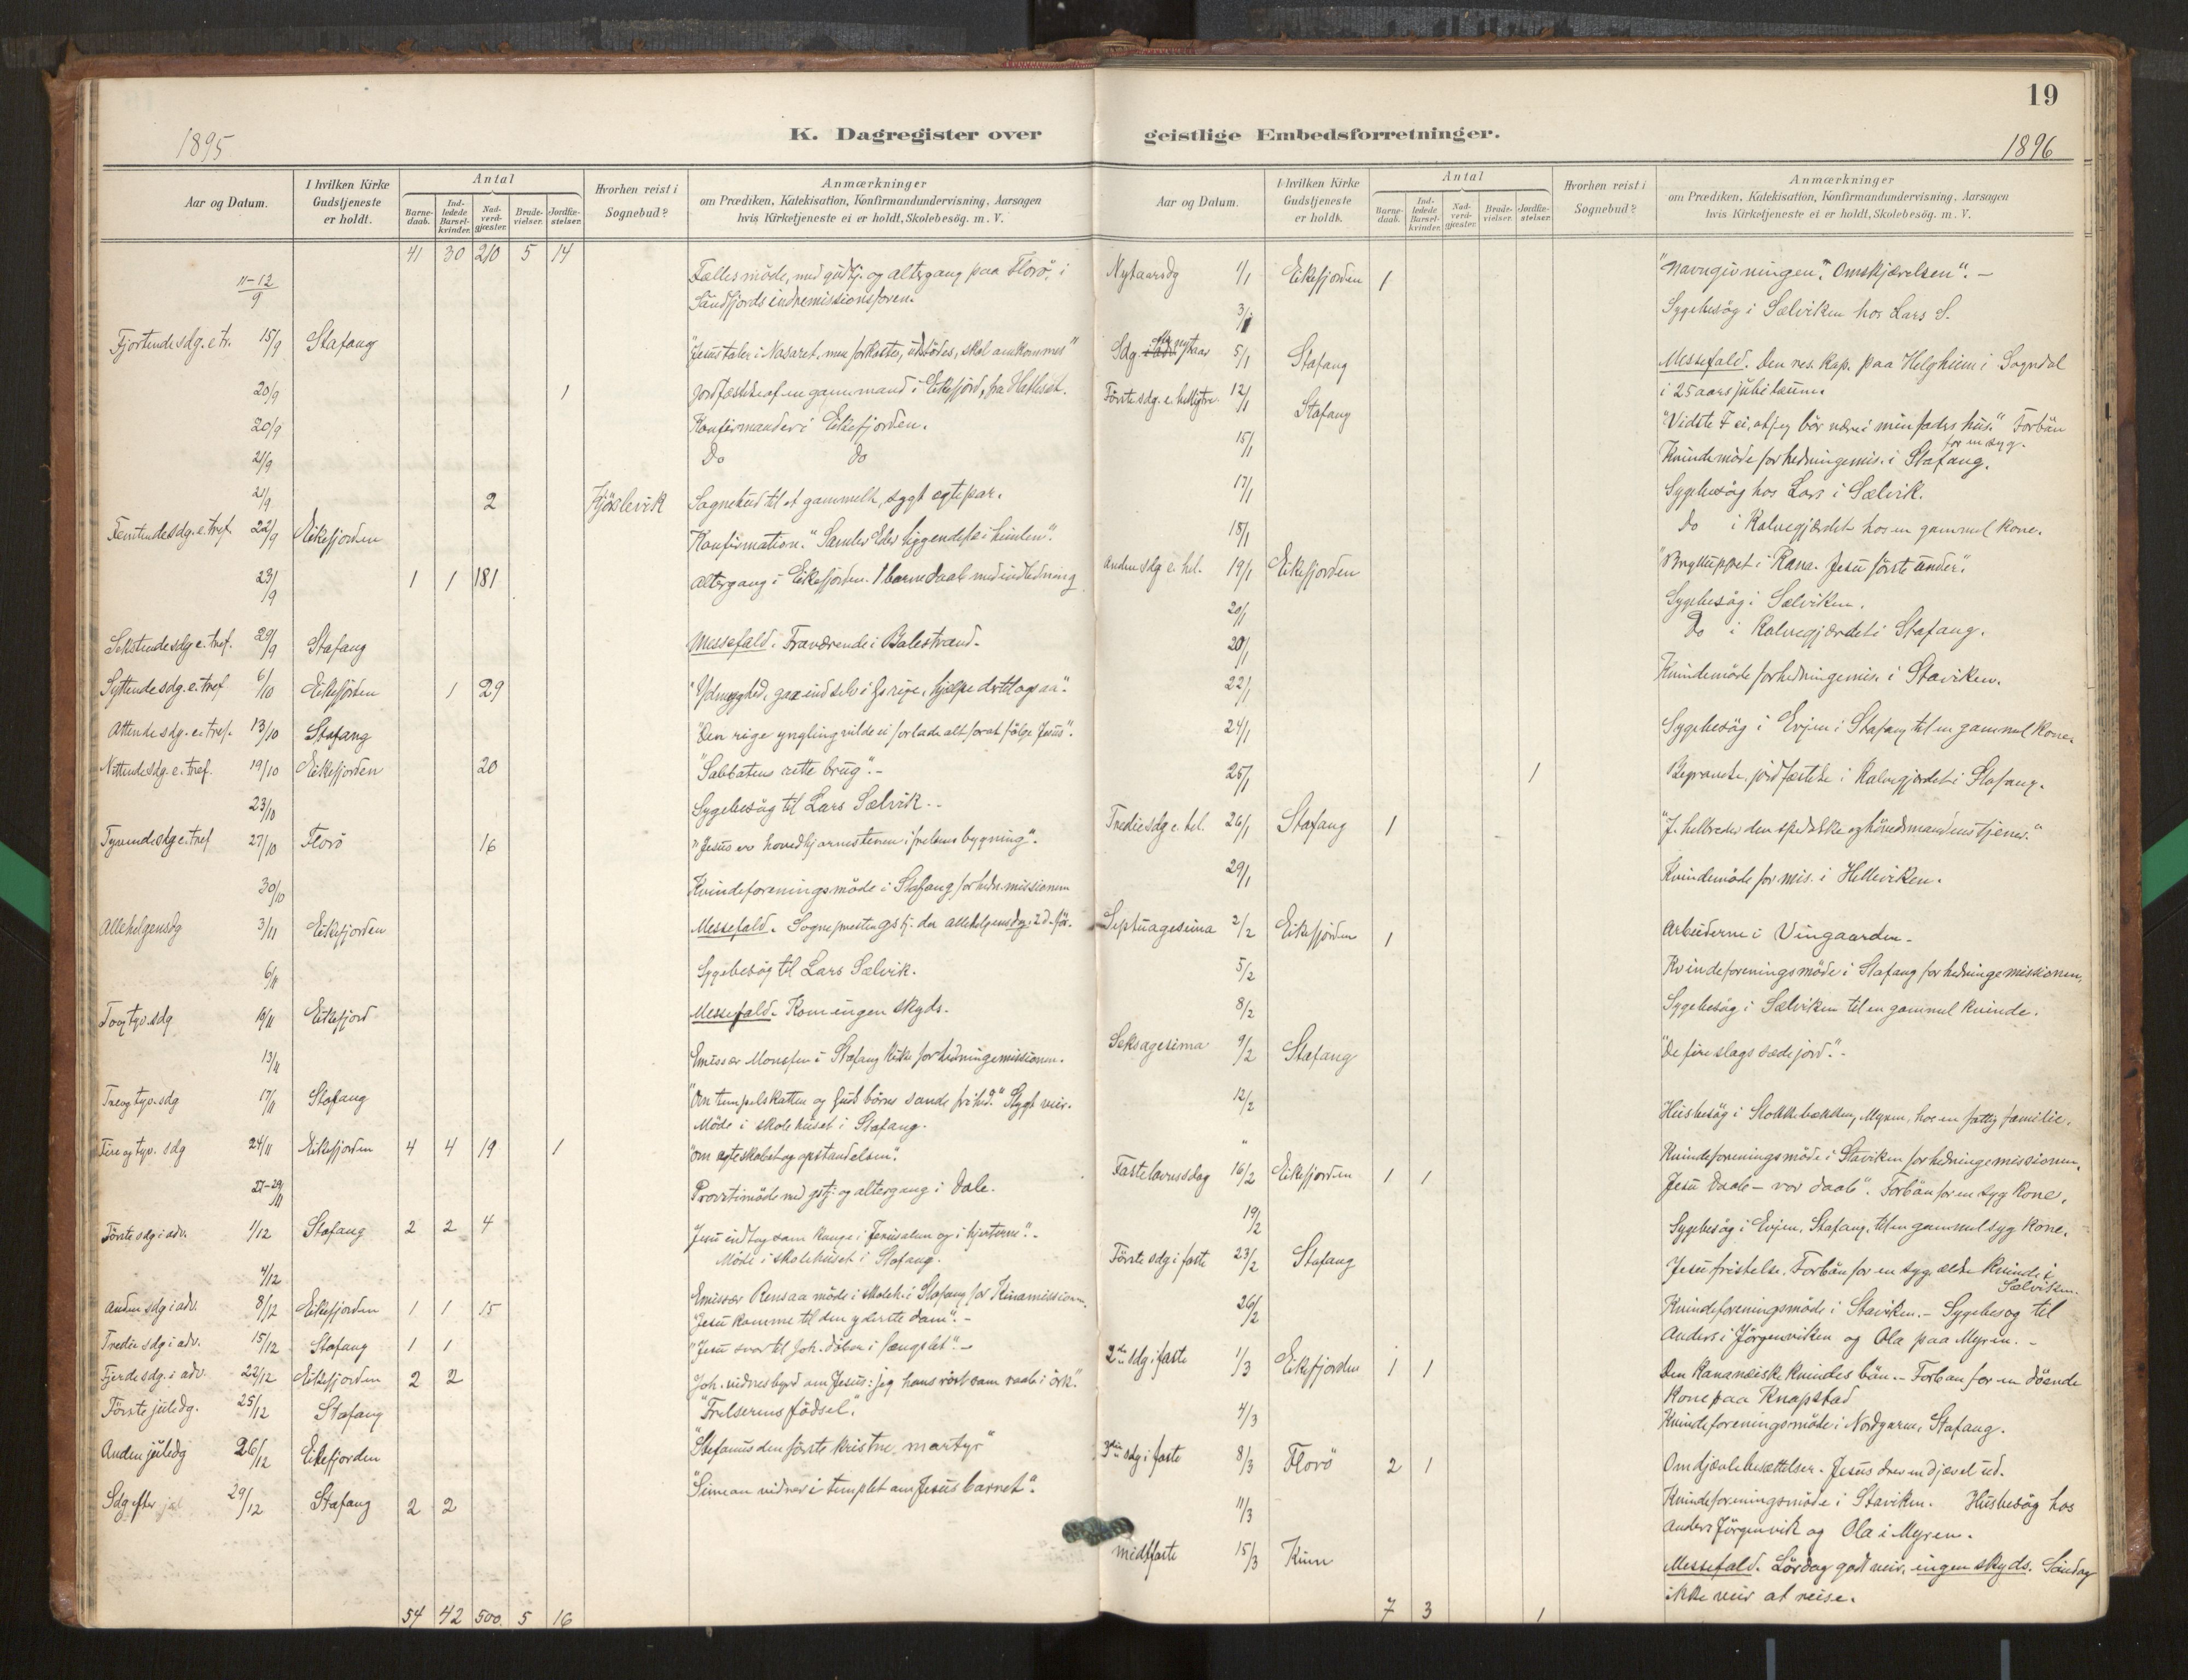 19
1895
K. Dagregister over geistlige Embedsforretninger.
1896
Aar og Datum.
I hvilken Kirke Gudstjeneste er holdt.
Antal
Barnedaab.
Indledede Barselkvinder.
Nadverdgjæster.
Brudevielser.
Jordfæstelser.
Hvorhen reist i Sognebud?
Anmærkninger
om Prædiken, Katekisation, Konfirmandundervisning, Aarsagen
hvis Kirketjeneste ei er holdt, Skolebesög. m. V.
41 30 210 5 14
11-12/9 Fællesmöde, med gudtj. og altergang paa Florö, i
Söndfjords indremissionsforen.
Fjortende sdg. e. tr. 15/9 Stafang "Jesus taler i Nasaret, men forkastes, udstödes, skal omkommes"
20/9 1 Jordfæstelse af en gam. mand i Eikefjord, fra
20/9 Konfirmander i Eikefjorden.
21/9 Do Do
21/9 2 Sognebud til et gammelt, sygt egtepar.
Femtende sdg. e. tref. 22/9 Eikefjorden Konfirmation. "Samler Eder liggendefæ i himlen".
23/9 1 1 181 Altergang i Eikefjorden. 1 barnedaab med indledning
Sekstende sdg e. tref. 29/9 Stafang Messefald. Fraværende i Balestrand.
Syttende sdg. e. tref 6/10 Eikefjorden 1 29 "Ydmyghed, gaa ind selv i Gs rige, hjælpe dertil ogsaa".
Attende sdg. e. tref. 13/10 Stafang "Den rige yngling vilde ei forlade alt forat fölge Jesus".
Nittende sdg. e. tref. 19/10 Eikefjorden 20 "Sabbatens rette brug".-
23/10 Sygebesög til Lars Sælvik.-
Tyvende sdg e. tref 27/10 Florö 16 "Jesus er hovedhjörnestenen i frelsens bygning".
30/10 Kvindeforeningsmöde i Stafang for hedn. missionen
Allehelgensdg 3/11 Eikefjorden Messefald. Sognepresten gstj. der allehelgensdg: 2 d. för.
6/11 Sygebesög til Lars Sælvik.
Toogtyv. sdg 10/11 Eikefjord Messefald. Kom ingen skyds.
13/11 Emissær Monsen i Stafang kirke for hedningemissionen.
Treogtyv. sdg 17/11 Stafang "Om tempelskatten og Guds börns sande frihed." Stygt veir.
Möde i skolehuset i Stafang.
Fire og tyv. sdg 24/11 Eikefjorden 4 4 19 1 "Om egteskabet og opstandelsen".
27-29/11 Provstimöde med gstj. og altergang i Dale.
Förste sdg i adv. 1/12 Stafang 2 2 4 Jesu indtog som konge i Jerusalem og i hjerterne".-
Möde i skolehuset i Stafang.
4/12 Emissær Rensaa möde i skoleh. i Stafang for Kinamissionen.
Anden sdg i adv. 8/12 Eikefjorden 1 1 15 "Jesu komme til den yderste dom".-
Tredie sdg i adv. 15/12 Stafang 1 1 "Jesu svar til Joh. döber i fængslet".-
Fjerde sdg. i adv. 22/12 Eikefjorden 2 2 Joh. vidnesbyrd om Jesus: jeg hans röst som raab i örk."
Förste juledg. 25/12 Stafang "Frelserens födsel".
Anden juledg 26/12 Eikefjorden "Stefanus den förste kristne martyr"
Sdg efter jul 29/12 Stafang 2 2 "Simeon vidner i templet om Jesusbarnet".
54 42 500 5 16
Aar og Datum.
I hvilken Kirke Gudstjeneste er holdt.
Antal
Barnedaab.
Indledede Barselkvinder.
Nadverdgjæster.
Brudevielser.
Jordfæstelser.
Hvorhen reist i Sognebud?
Anmærkninger
om Prædiken, Katekisation, Konfirmandundervisning, Aarsagen
hvis Kirketjeneste ei er holdt, Skolebesög. m. V.
Nytaarsdg 1/1 Eikefjorden 1 "Navngivningen". Omskjærelsen".-
3/1 Sygebesög i Sælviken hos Lars S.
Sdg. efter nytaar 5/1 Stafang Messefald. Den res. kap. paa Helgheim i Sogndal
i 25 aars jubilæum.
Förste sdg. e. helligtre. 12/1 Stafang "Vidste I ei, at jeg bör være i min faders hus." Forbön
for en syg.
15/1 Kvindemöde for hedningemis. i Stafang.
17/1 Sygebesög hos Lars i Sælvik.
18/1 Do i Kalvegjærdet hos en gammel kone.
Anden sdg e. hel. 19/1 Eikefjorden "Brylluppet i Kana. Jesu förste under".
20/1 Sygebesög i Sælviken.
20/1 Do i Kalvegjærdet i Stafang.
22/1 Kvindemöde for hedningemis. i Staviken.
24/1 Sygebesög i Evjen i Stafang til en gammel kone.
25/1 1 Begravelse, jordfæstelse i Kalvegjærdet i Stafang.
Tredie sdg e. hel. 26/1 Stafang 1 "J. helbreder den spedalske og hövedsmandens tjener."
29/1 Kvindemöde for mis. i Helleviken.
Septuagesima 2/2 Eikefjorden 1 Arbeiderne i Vingaarden.-
5/2 Kvindeforeningsmöde i Stafang for hedningemissionen.
8/2 Sygebesög i Sælviken til en gammel kvinde.
Seksagesima 9/2 Stafang "De fire slags sædejord".-
12/2 Husbesög i Stokkebækken, Myren, hos en fattig familie.
" Kvindeforeningsmöde i Staviken for hedningemissionen.
Fastelavnsdag 16/2 Eikefjorden 1 1 Jesu daab - vor daab". Forbön for en syg kone.
19/2 Sygebesög i Evjen, Stafang, til en gammel syg kone.
Förste sdg i faste 23/2 Stafang Jesu fristelse. Forbön for en syg, ældre kvinde i
Sælviken.
26/2 Kvindeforeningsmöde i Staviken.- Sygebesög til
Anders i Jörgenviken og Ola paa Myren.-
2den sdg i faste 1/3 Eikefjorden 1 1 Den kananæiske kvindes bön.- Forbön for en döende
kone paa Knapstad
4/3 Kvindeforeningsmöde i Nordgaren, Stafang.
3die sdg i faste 8/3 Florö 2 1 Om djævlebesættelser. Jesus drev en djævel ud.
11/3 Kvindeforeningsmöde i Staviken. Husbesög hos
Anders Jörgenvik og Ola i Myren.
Midtfaste 15/3 Kinn Messefald. Lördag godt veir, ingen skyds. Söndag
ikke veir at reise.
7 3 1